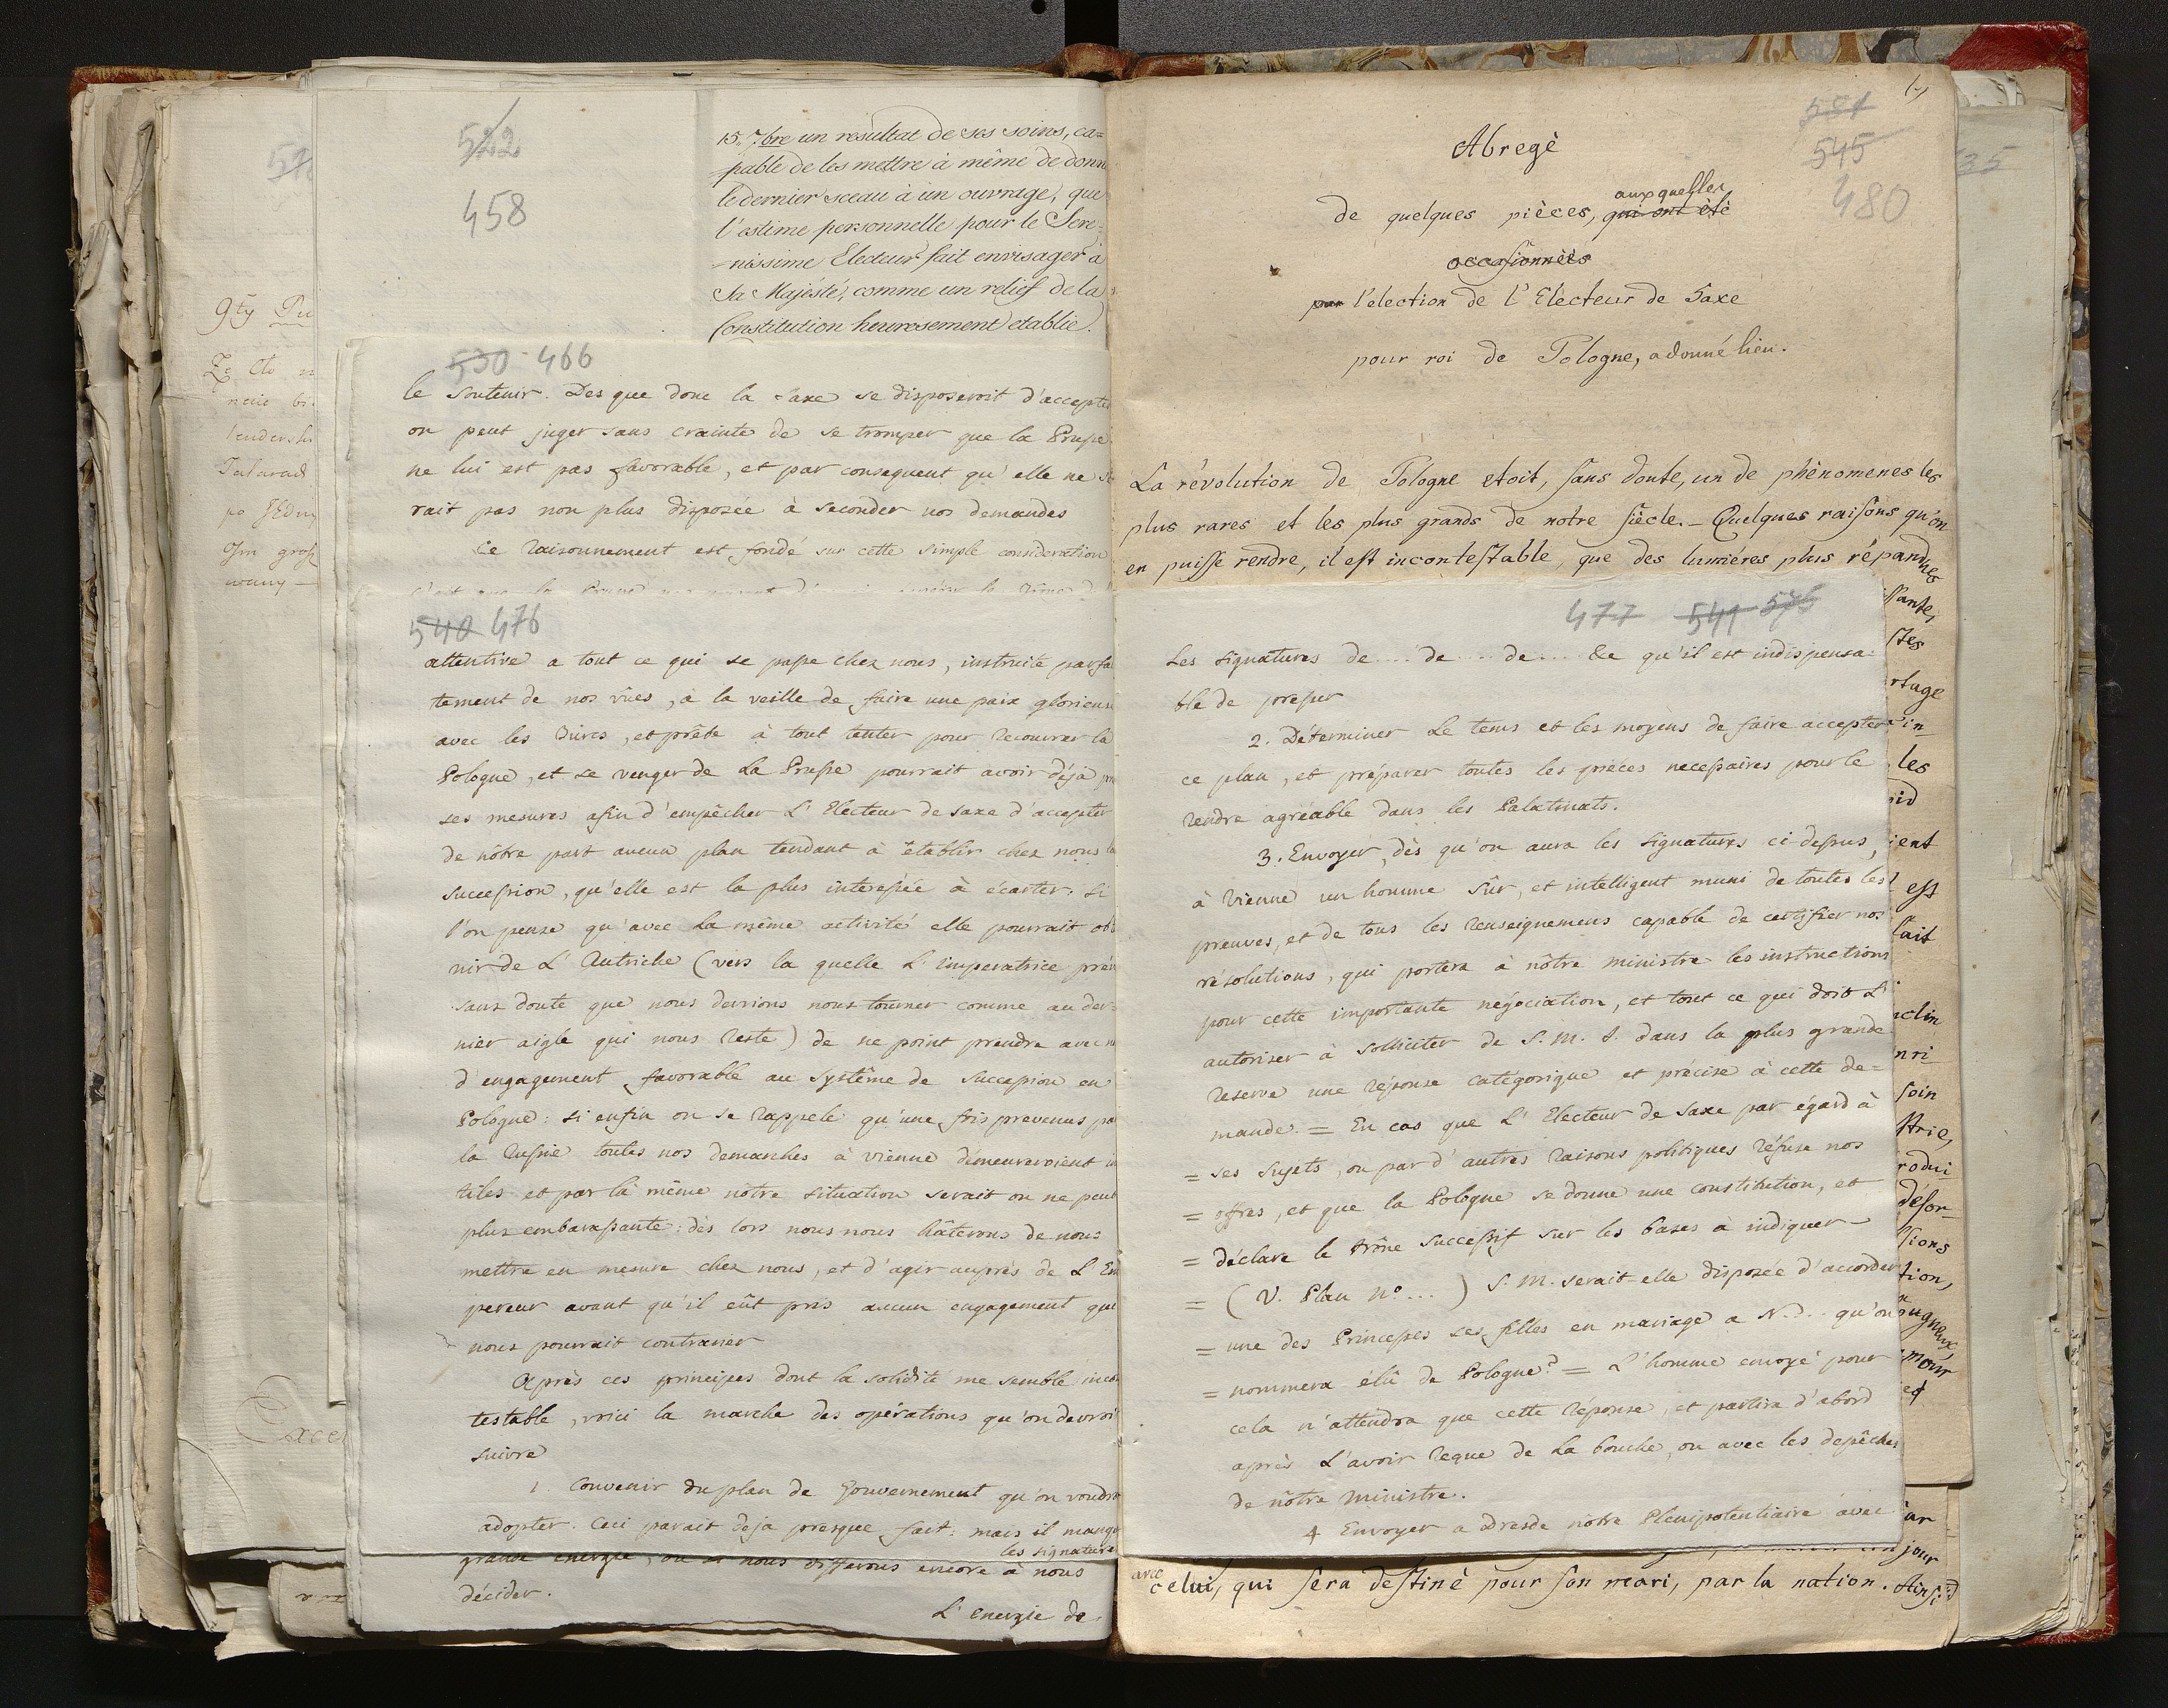 522
458
15. 7bre un résultat de ses soins, ca=
pable de les mettre à même de donn
le dernier sceau à un ouvrage, que
l'estime personnelle pour le Sere=
=nissime Electeur fait envisager à
Sa Majesté, comme un relief de la
Constitution heureusement etablie.
9ty
Ze Cto
530 - 466
le soutenir. Des que donc la Saxe se disposeroit d'accepter
on peut juger sans crainte de se tromper que la Prusse
ne lui est pas favorable, et par consequent qu'elle ne se
rait pas non plus disposée à seconder nos demandes
Ce raisonnement est fondé sur cette simple consideration
540 476
attentive a tout ce qui se passe chez nous, instruite parfa
tement de nos vûes, à la veille de faire une paix glorieuse
avec les Turcs, et prête à tout tenter pour recouvrer la
Pologne, et se venger de La Prusse pourrait avoir déja pr
ses mesures afin d'empêcher L'Electeur de saxe d'accepter
de nôtre part aucun plan tendant à établir chez nous la
succession, qu'elle est la plus interessée à écarter: si
l'on pense qu'avec la même activité elle pourrait obt
nir de L'Autriche (vers la quelle L'imperatrice prév
sans doute que nous devrions nous tourner comme au der=
nier aigle qui nous reste) de ne point prendre avec n
d'engagement favorable au système de succession en
Pologne: si enfin on se rappele qu'une fois prevenus pa
la Russie toutes nos demarches à vienne démeureroient in
tiles et par là même nôtre situation serait on ne peut
plus embarassante: dès lors nous nous hâterons de nous
mettre en mesure chez nous, et d'agir auprès de L'Em
pereur avant qu'il eût pris aucun engagement que
nous pourrait contrarier
Après ces principes dont la solidité me semble incon
testable, voici la marche des opérations qu'on devroi
suivre
1. Convenir du plan de Gouvernement qu'on voudra
adopter. Ceci parait deja presque fait: mais il manque
les signature
grande energie, ou si nous differons encore à nous
décider.
L'energie de
551
545
480
Abregè
de quelques pièces, auxquelles qui ont étè
occasionnées
par l'election de l'Electeur de Saxe
pour roi de Pologne, a donné lieu.
La révolution de Pologne etoit, sans doute, un de phènomenes les
plus rares et les plus grands de notre siècle. - Quelques raisons qu'on
en puisse rendre, il est incontestable, que des lumiéres plus répandues
477 541 575
Les signatures de.... de... de... &c qu'il est indispensa=
ble de presser
2. Déterminer Le tems et les moyens de faire accepter
ce plan, et préparer toutes les pièces necessaires pour le
rendre agréable dans les Palatinats.
3. Envoyer, dès qu'on aura les signatures ci-dessus,
à Vienne un homme sûr, et intelligent muni de toutes les
preuves, et de tous les renseignemens capable de certifier nos
résolutions, qui portera à nôtre ministre les instructions
pour cette importante négociation, et tout ce qui doit L'
autoriser à solliciter de S. M. I. dans la plus grande
reserve une réponse catégorique et précise à cette de=
mande. = En cas que L'Electeur de Saxe par égard à
= ses sujets, ou par d'autres raisons politiques réfuse nos
= offres, et que la Pologne se donne une constitution, et
= déclare le trône successif sur les bases à indiquer
= (V. Plan N°...) S. M. serait elle disposée d'accorder
= une des Princesses ses filles en mariage a N.d.. qu'on
= nommera élû de Pologne? = L'homme envoyé pour
cela n'attendra que cette réponse, et partira d'abord
après L'avoir reçue de La bouche, ou avec les depêches
de nôtre Ministre.
4 Envoyer a Dresde nôtre Plenipotentiaire avec
avec
celui, qui sera destinè pour son mari, par la nation. Ainsi